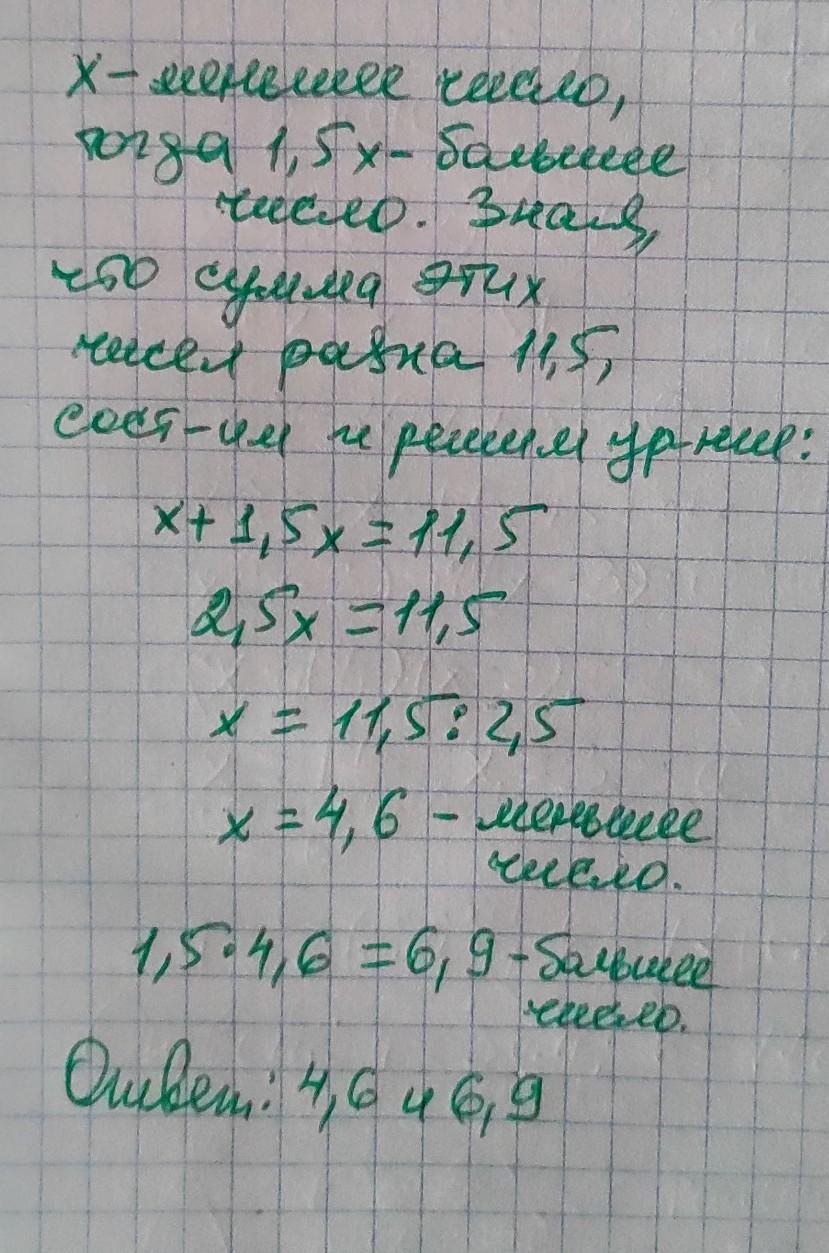 x – меньшее число,
тогда 1,5x – большее
число. Зная,
что сумма этих
чисел равна 11,5,
сост-им и решим ур-ние:
x + 1,5x = 11,5
2,5x = 11,5
x = 11,5 : 2,5
x = 4,6 – меньшее
число.
1,5 · 4,6 = 6,9 – большее
число.
Ответ: 4,6 и 6,9